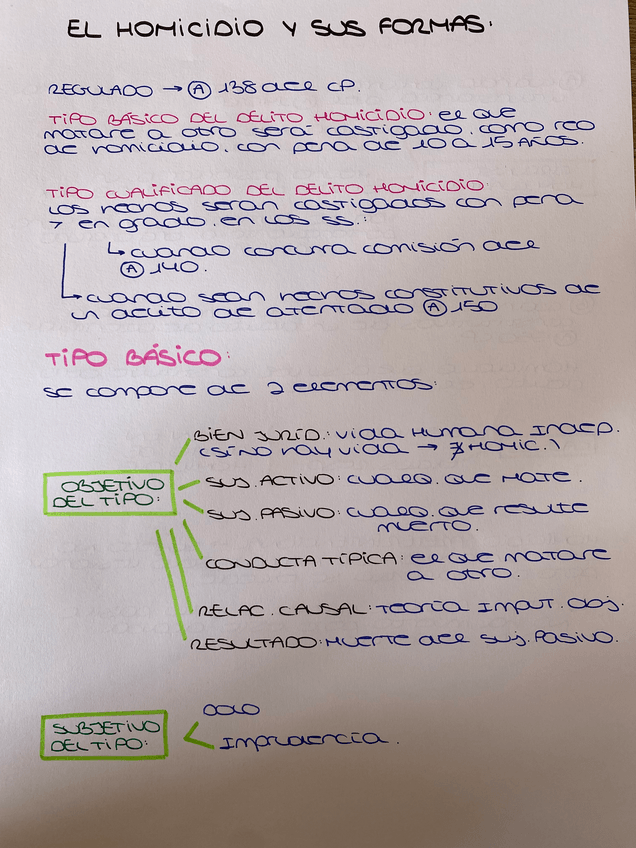 EL HOMICIDIO Y SUS FORMAS:
REGULADO → (A) 138 del CP.
TIPO BÁSICO DEL DELITO HOMICIDIO: el que
matare a otro será castigado, como reo
de homicidio, con pena de 10 a 15 AÑOS.
TIPO CUALIFICADO DEL DELITO HOMICIDIO:
Los hechos serán castigados con pena
> en grado, en los ss.:
↳ cuando concurra comisión del
(A) 140.
↳ cuando sean hechos constitutivos de
un delito de atentado (A) 150
TIPO BÁSICO:
se compone de 2 elementos:
OBJETIVO
DEL TIPO:
BIEN JURÍD.: vida Humana Indep.
(si no hay vida → ∄ HOMIC.)
SUJ. ACTIVO: cualq. que mate.
SUJ. PASIVO: cualq. que resulte
muerto.
CONDUCTA TÍPICA: el que matare
a otro.
RELAC. CAUSAL: Teoría Imput. Obj.
RESULTADO: Muerte del suj. Pasivo.
SUBJETIVO
DEL TIPO:
DOLO
Imprudencia.